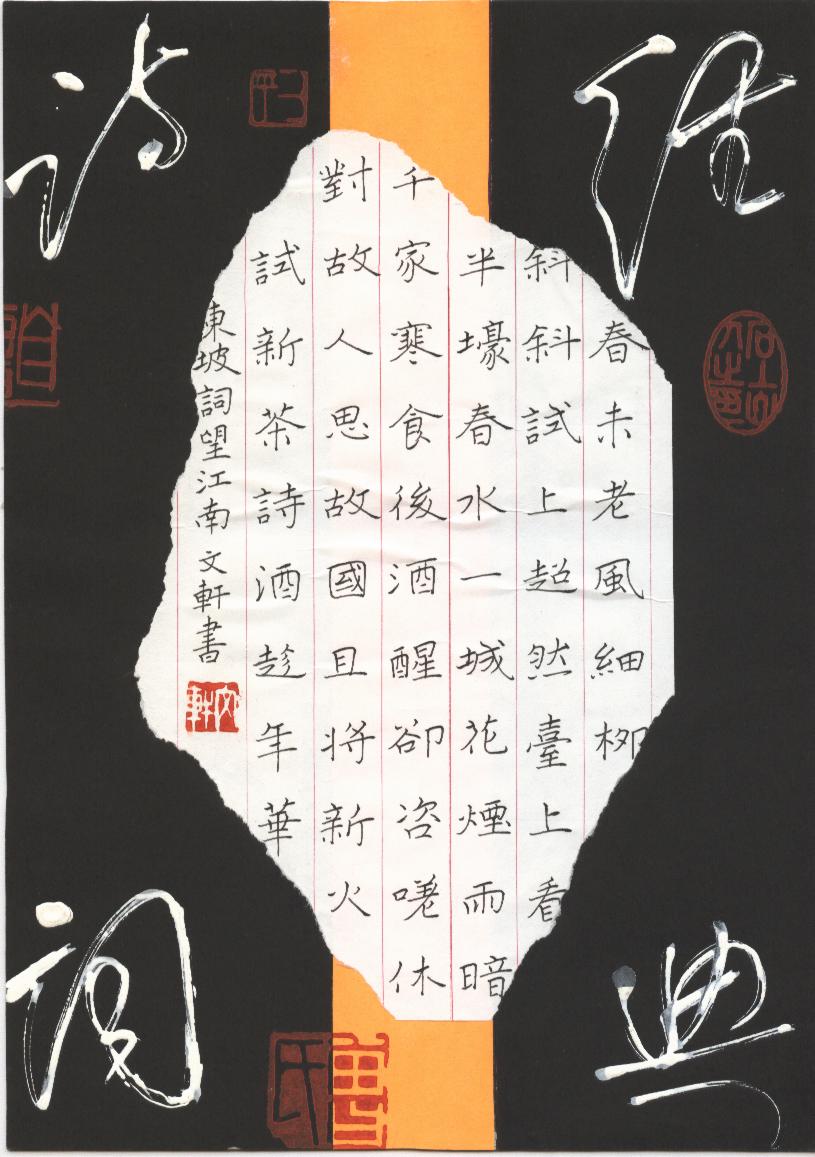 经典
诗词
春未老風細柳
斜斜試上超然臺上看
半壕春水一城花煙雨暗
千家寒食後酒醒卻咨嗟休
對故人思故國且將新火
試新茶詩酒趁年華
東坡詞望江南 文軒書
文軒